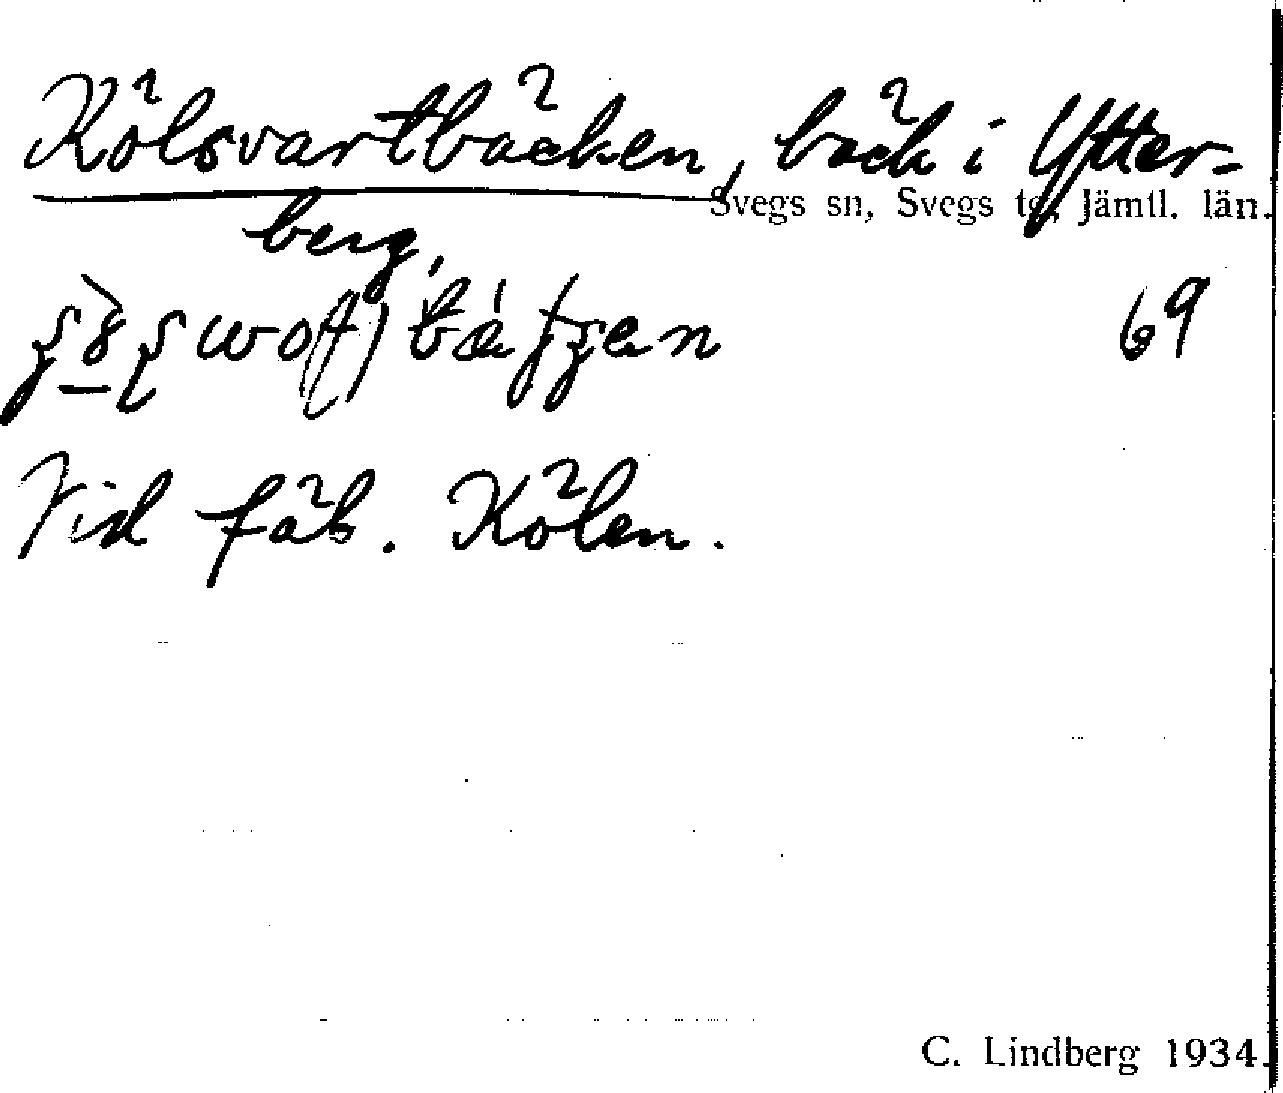 Kölsvartbäcken, bäck i Ytter-
Svegs sn, Svegs tg, Jämtl. län.
berg,
69
Vid fäb. Kölen.
C. Lindberg 1934.